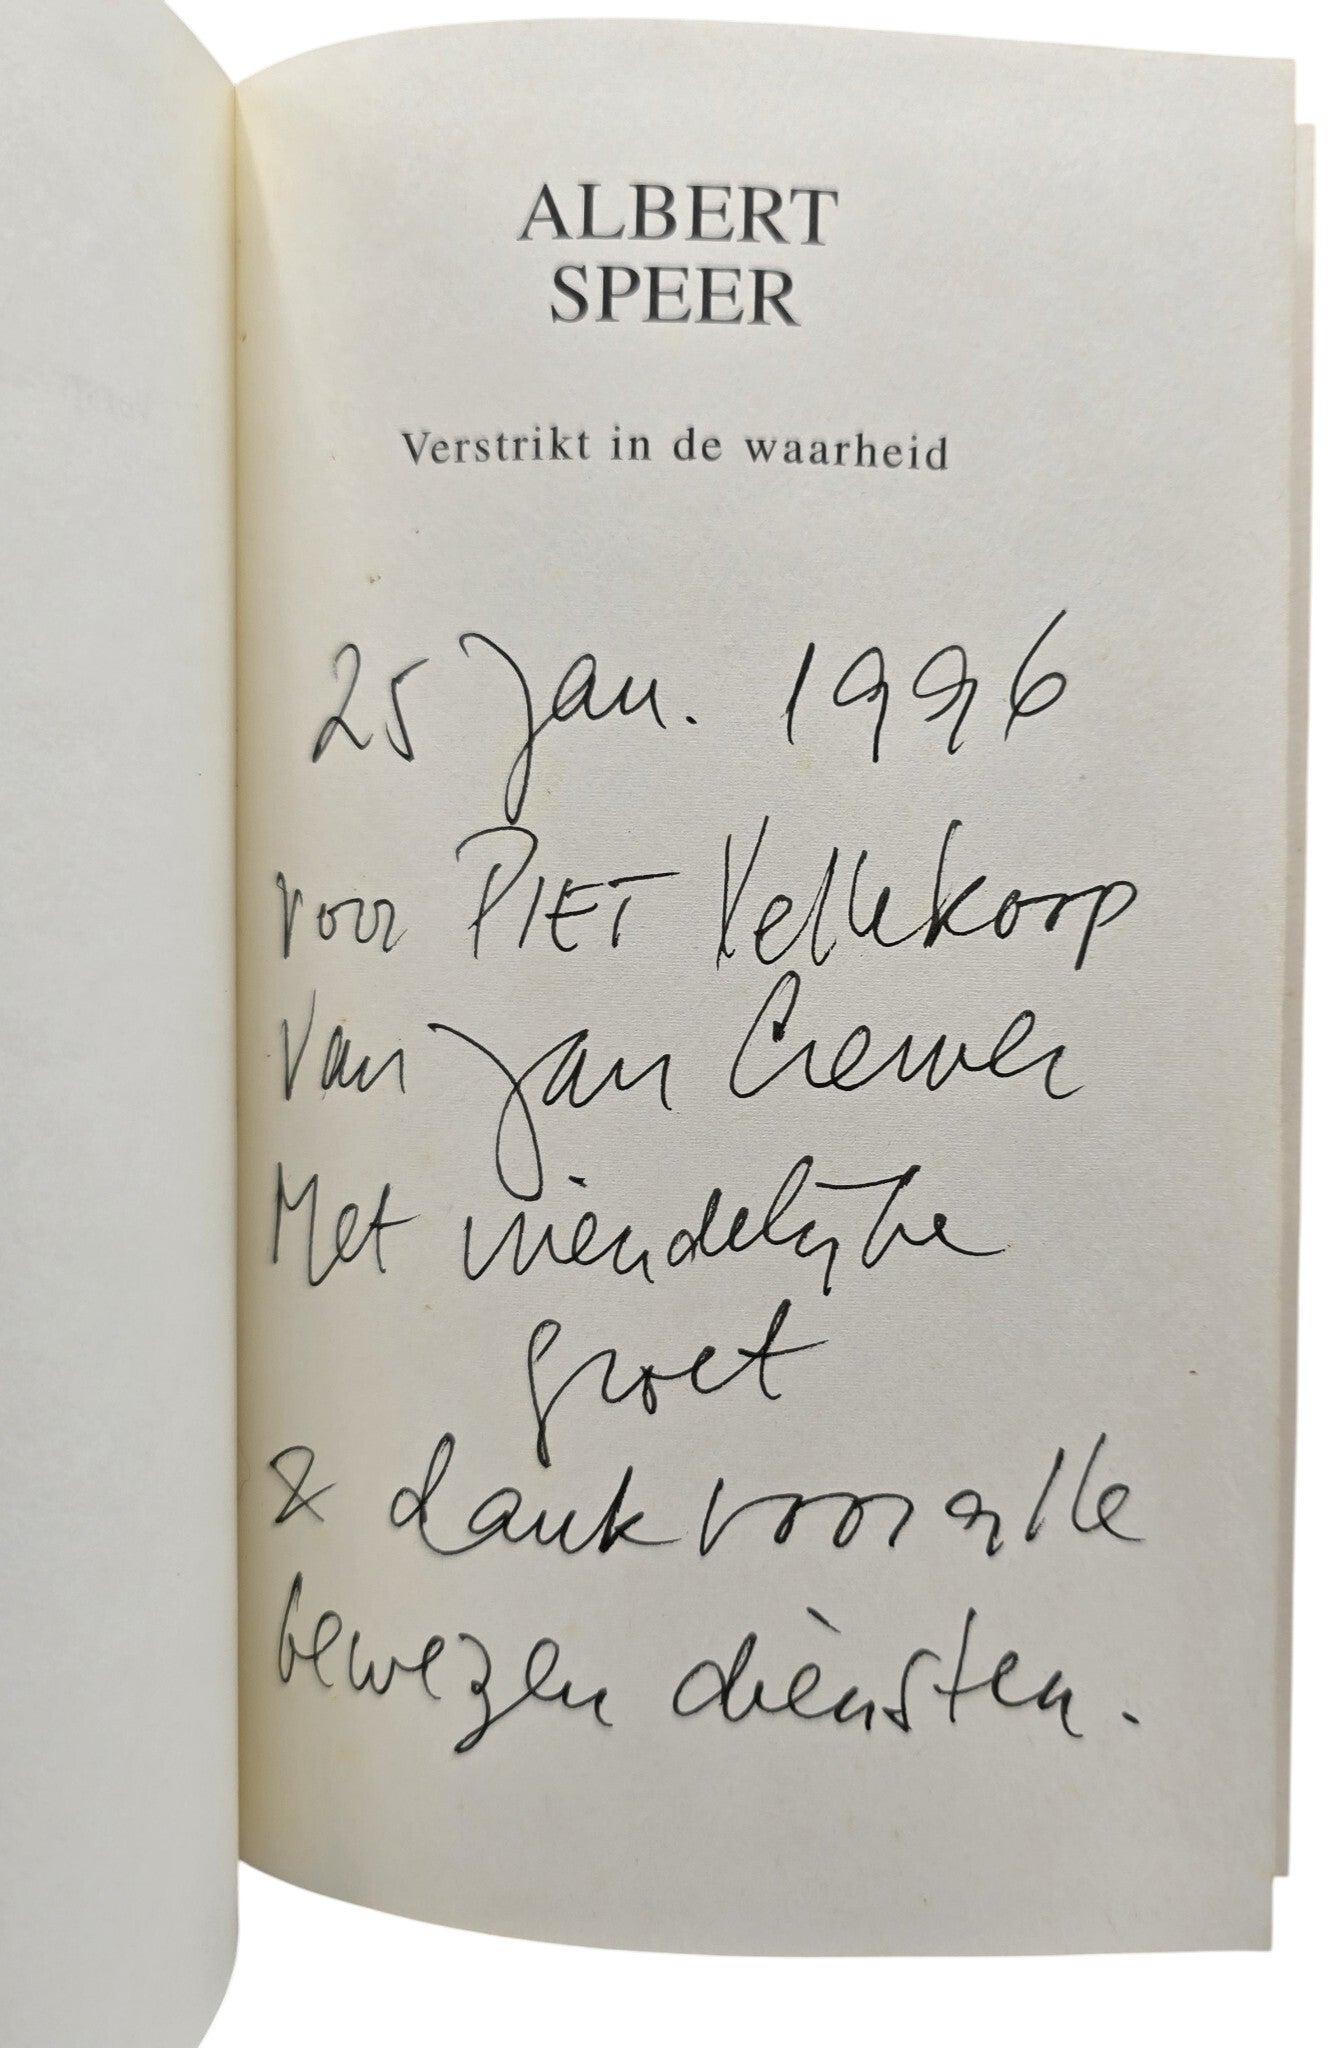 ALBERT
SPEER
Verstrikt in de waarheid
25 Jan. 1996
voor PIET Kellekoop
van Jan Cremer
Met vriendelijke
groet
& dank voor alle
bewezen diensten.